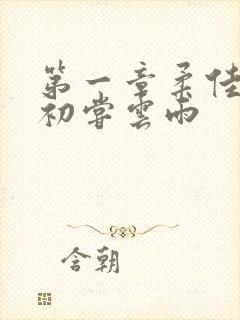 第一章柔佳
初嘗雲雨
含朝